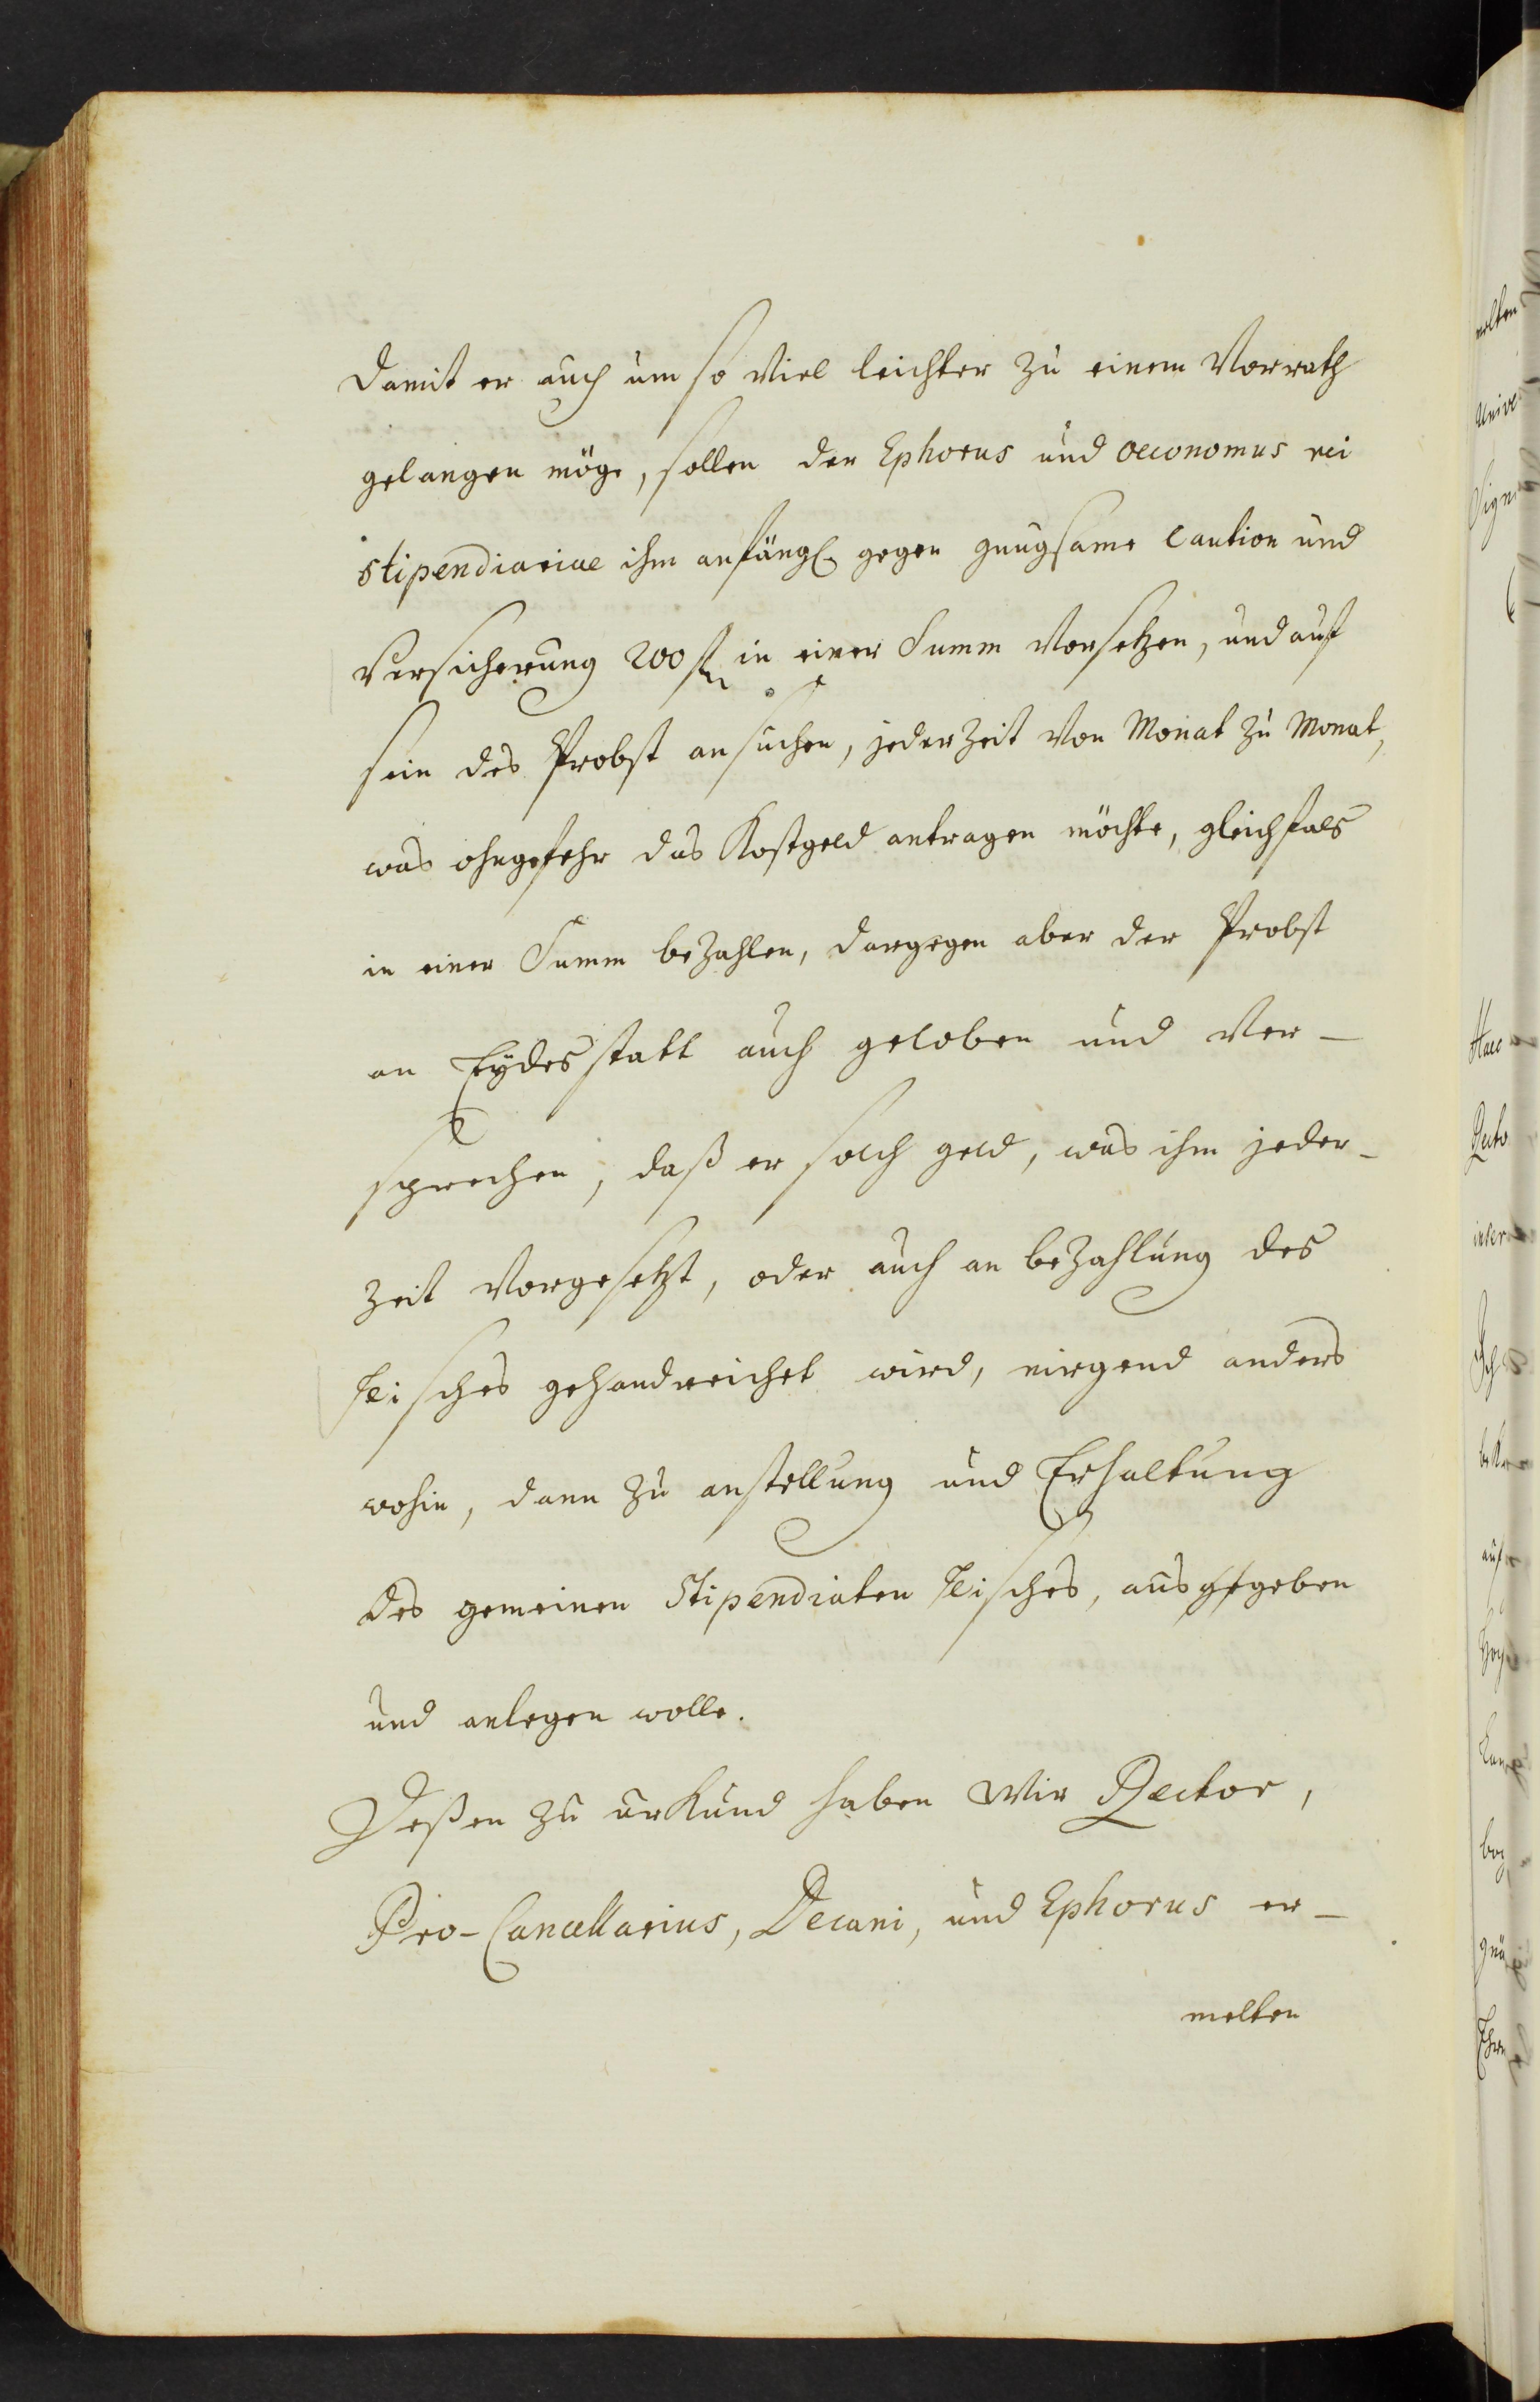 Damit er auch um so viel leichter zu einem Vorrath
gelangen möge, sollen der Ephorus und oeconomus rei
stipendiariae ihm anfängl. gegen gnugsame Caution und
Versicherung 200 fl. in einer Summ vorsetzen, und auf
sein des Probst ansuchen, jederzeit von Monat zu Monat,
was ohngefehr das Kostgeld antragen möchte, gleichfals
in einer Summ bezahlen, dargegen aber der Probst
an Eydes statt auch geloben und ver-
sprechen, daß er solch geld, was ihm jeder-
zeit vorgesetzt, oder auch an bezahlung des
Tisches gehandreichet wird, nirgend anders
wohin, dann zu anstellung und Erhaltung
des gemeinen Stipendiaten Tisches, ausgegeben
und anlegen wolle.
Deßen zu urkund haben wir Rector,
Pro-Cancellarius, Decani, und Ephorus er-
melten